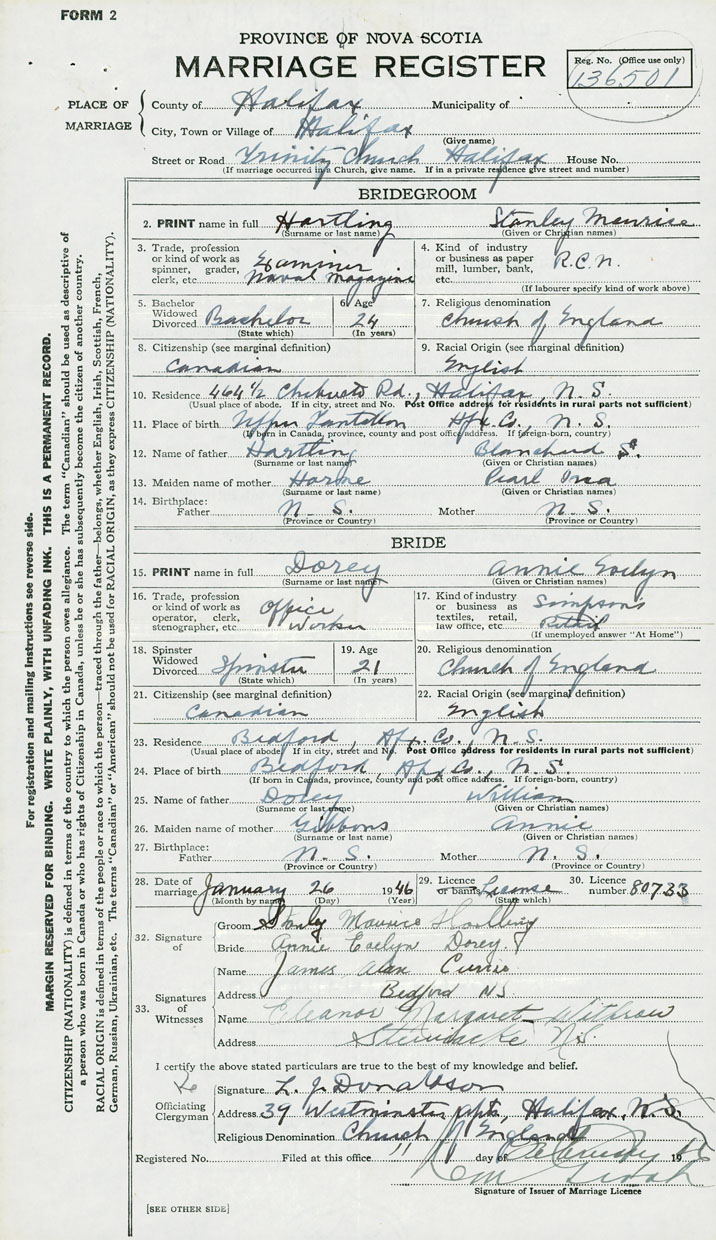 FORM 2
PROVINCE OF NOVA SCOTIA
MARRIAGE REGISTER
Reg. No. (Office use only)
136501
PLACE OF MARRIAGE
County of Halifax Municipality of
City, Town or Village of Halifax
(Give name)
Street or Road Trinity Church Halifax House No.
(If marriage occurred in a Church, give name. If in a private residence give street and number)
BRIDEGROOM
2. PRINT name in full Hartling Stanley Maurice
(Surname or last name) (Given or Christian names)
3. Trade, profession or kind of work as spinner, grader, clerk, etc. Examiner Naval Magazine
4. Kind of industry or business as paper mill, lumber, bank, etc. R.C.N.
(If labourer specify kind of work above)
5. Bachelor Widowed Divorced Bachelor
(State which)
6. Age 24
(In years)
7. Religious denomination
Church of England
8. Citizenship (see marginal definition)
Canadian
9. Racial Origin (see marginal definition)
English
10. Residence 464 1/2 Chebucto Rd., Halifax, N. S.
(Usual place of abode. If in city, street and No. Post Office address for residents in rural parts not sufficient)
11. Place of birth Upper Tantallon Hfx. Co., N. S.
(If born in Canada, province, county and post office address. If foreign-born, country)
12. Name of father Hartling Blanchard S.
(Surname or last name) (Given or Christian names)
13. Maiden name of mother Pearl
(Surname or last name) (Given or Christian names)
14. Birthplace:
Father N. S. Mother N. S.
(Province or Country) (Province or Country)
BRIDE
15. PRINT name in full Dorey Annie Evelyn
(Surname or last name) (Given or Christian names)
16. Trade, profession or kind of work as operator, clerk, stenographer, etc. Office Worker
17. Kind of industry or business as textiles, retail, law office, etc. Simpson's Retail
(If unemployed answer "At Home")
18. Spinster Widowed Divorced Spinster
(State which)
19. Age 21
(In years)
20. Religious denomination
Church of England
21. Citizenship (see marginal definition)
Canadian
22. Racial Origin (see marginal definition)
English
23. Residence Bedford, Hfx. Co., N. S.
(Usual place of abode. If in city, street and No. Post Office address for residents in rural parts not sufficient)
24. Place of birth Bedford, Hfx Co., N. S.
(If born in Canada, province, county and post office address. If foreign-born, country)
25. Name of father Dorey William
(Surname or last name) (Given or Christian names)
26. Maiden name of mother Gibbons Annie
(Surname or last name) (Given or Christian names)
27. Birthplace:
Father N. S. Mother N. S.
(Province or Country) (Province or Country)
28. Date of marriage January 26 1946
(Month by name) (Day) (Year)
29. Licence or banns License
(State which)
30. Licence number 80733
32. Signature of
Groom Stanley Maurice Hartling
Bride Annie Evelyn Dorey
33. Signatures of Witnesses
Name James Alan Currie
Address Bedford NS
Name Eleanor Margaret Withrow
Address Stewiacke N.S.
I certify the above stated particulars are true to the best of my knowledge and belief.
Officiating Clergyman
Signature L. J. Donaldson
Address 39 Westminster Apts, Halifax, N.S.
Religious Denomination Church of England
Registered No. Filed at this office 11 day of February 19
Signature of Issuer of Marriage Licence
[SEE OTHER SIDE]
For registration and mailing instructions see reverse side.
MARGIN RESERVED FOR BINDING. WRITE PLAINLY, WITH UNFADING INK. THIS IS A PERMANENT RECORD.
CITIZENSHIP (NATIONALITY) is defined in terms of the country to which the person owes allegiance. The term "Canadian" should be used as descriptive of
a person who was born in Canada or who has rights of Citizenship in Canada, unless he or she has subsequently become the citizen of another country.
RACIAL ORIGIN is defined in terms of the people or race to which the person—traced through the father—belongs, whether English, Irish, Scottish, French,
German, Russian, Ukrainian, etc. The terms "Canadian" or "American" should not be used for RACIAL ORIGIN, as they express CITIZENSHIP (NATIONALITY).